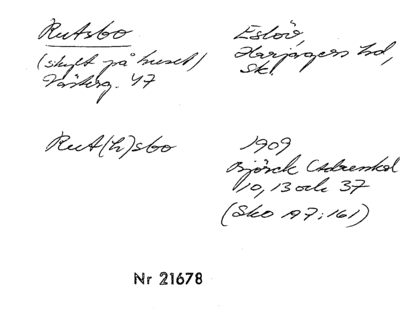 Rutsbo
(skylt på huset)
Västerg. 47
Eslöv,
Harjagers hd,
Sk.
Rut(h)sbo
1909
Björck Adresskal
10, 13 och 37
(Sko A7:161)
Nr 21678